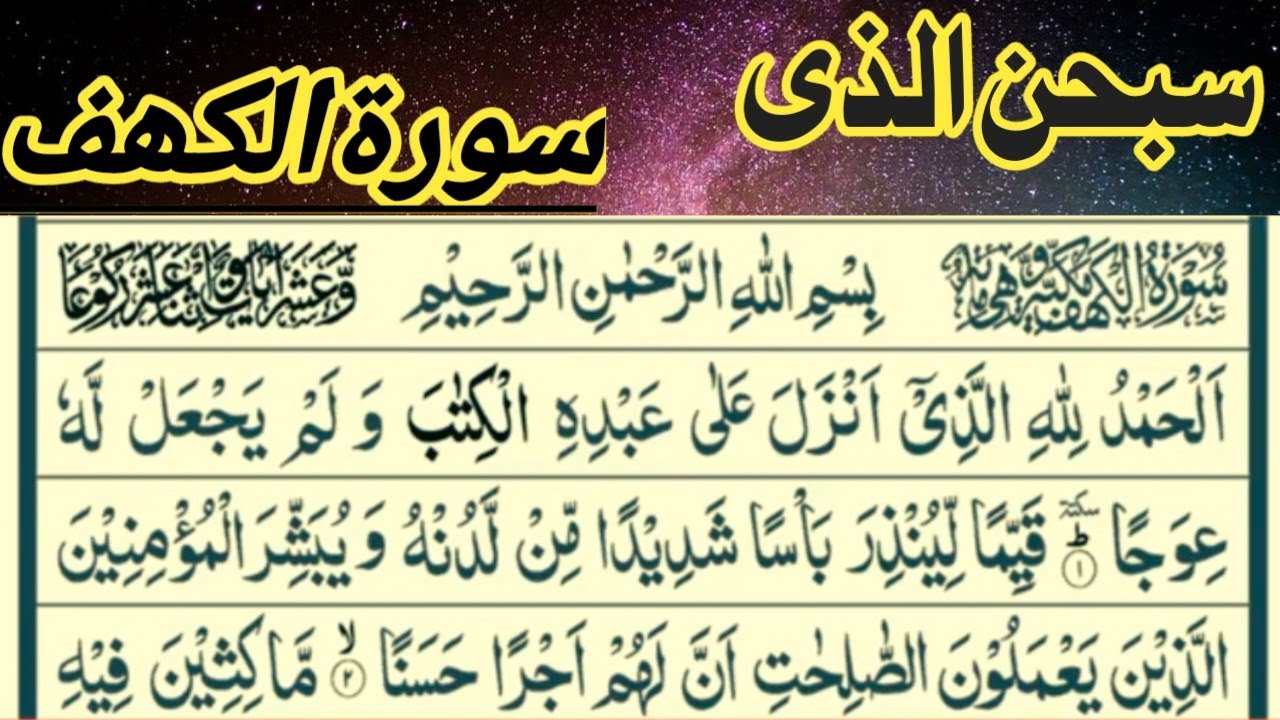 سبحن الذی
سورة الكهف
سُوْرَةُ الْكَهْفِ مَكِّيَّةٌ وَّهِيَ مِائَةٌ
بِسْمِ اللهِ الرَّحْمٰنِ الرَّحِيْمِ
وَّعَشْرُ اٰيَاتٍ وَّاثْنَا عَشَرَ رُكُوْعًا
اَلْحَمْدُ لِلّٰهِ الَّذِیْۤ اَنْزَلَ عَلٰی عَبْدِهِ الْكِتٰبَ وَ لَمْ يَجْعَلْ لَّهٗ
عِوَجًا ؕ سكتة ۱ قَيِّمًا لِّيُنْذِرَ بَاْسًا شَدِيْدًا مِّنْ لَّدُنْهُ وَ يُبَشِّرَ الْمُؤْمِنِيْنَ
الَّذِيْنَ يَعْمَلُوْنَ الصّٰلِحٰتِ اَنَّ لَهُمْ اَجْرًا حَسَنًا ۙ ۲ مَّاكِثِيْنَ فِيْهِ